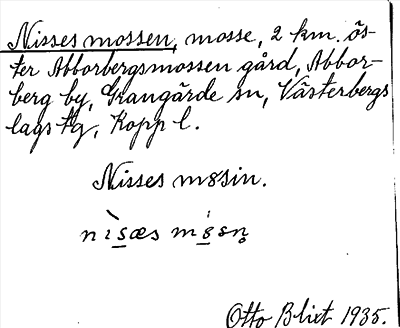 Nisses mossen, mosse, 2 km. ös-
ter Abborbergsmossen gård, Abbor-
berg by, Grangärde sn, Västerbergs
lags tg, Kopp l.
Nisses m8sin.
nìsæs m8sn̥
Otto Blixt 1935.